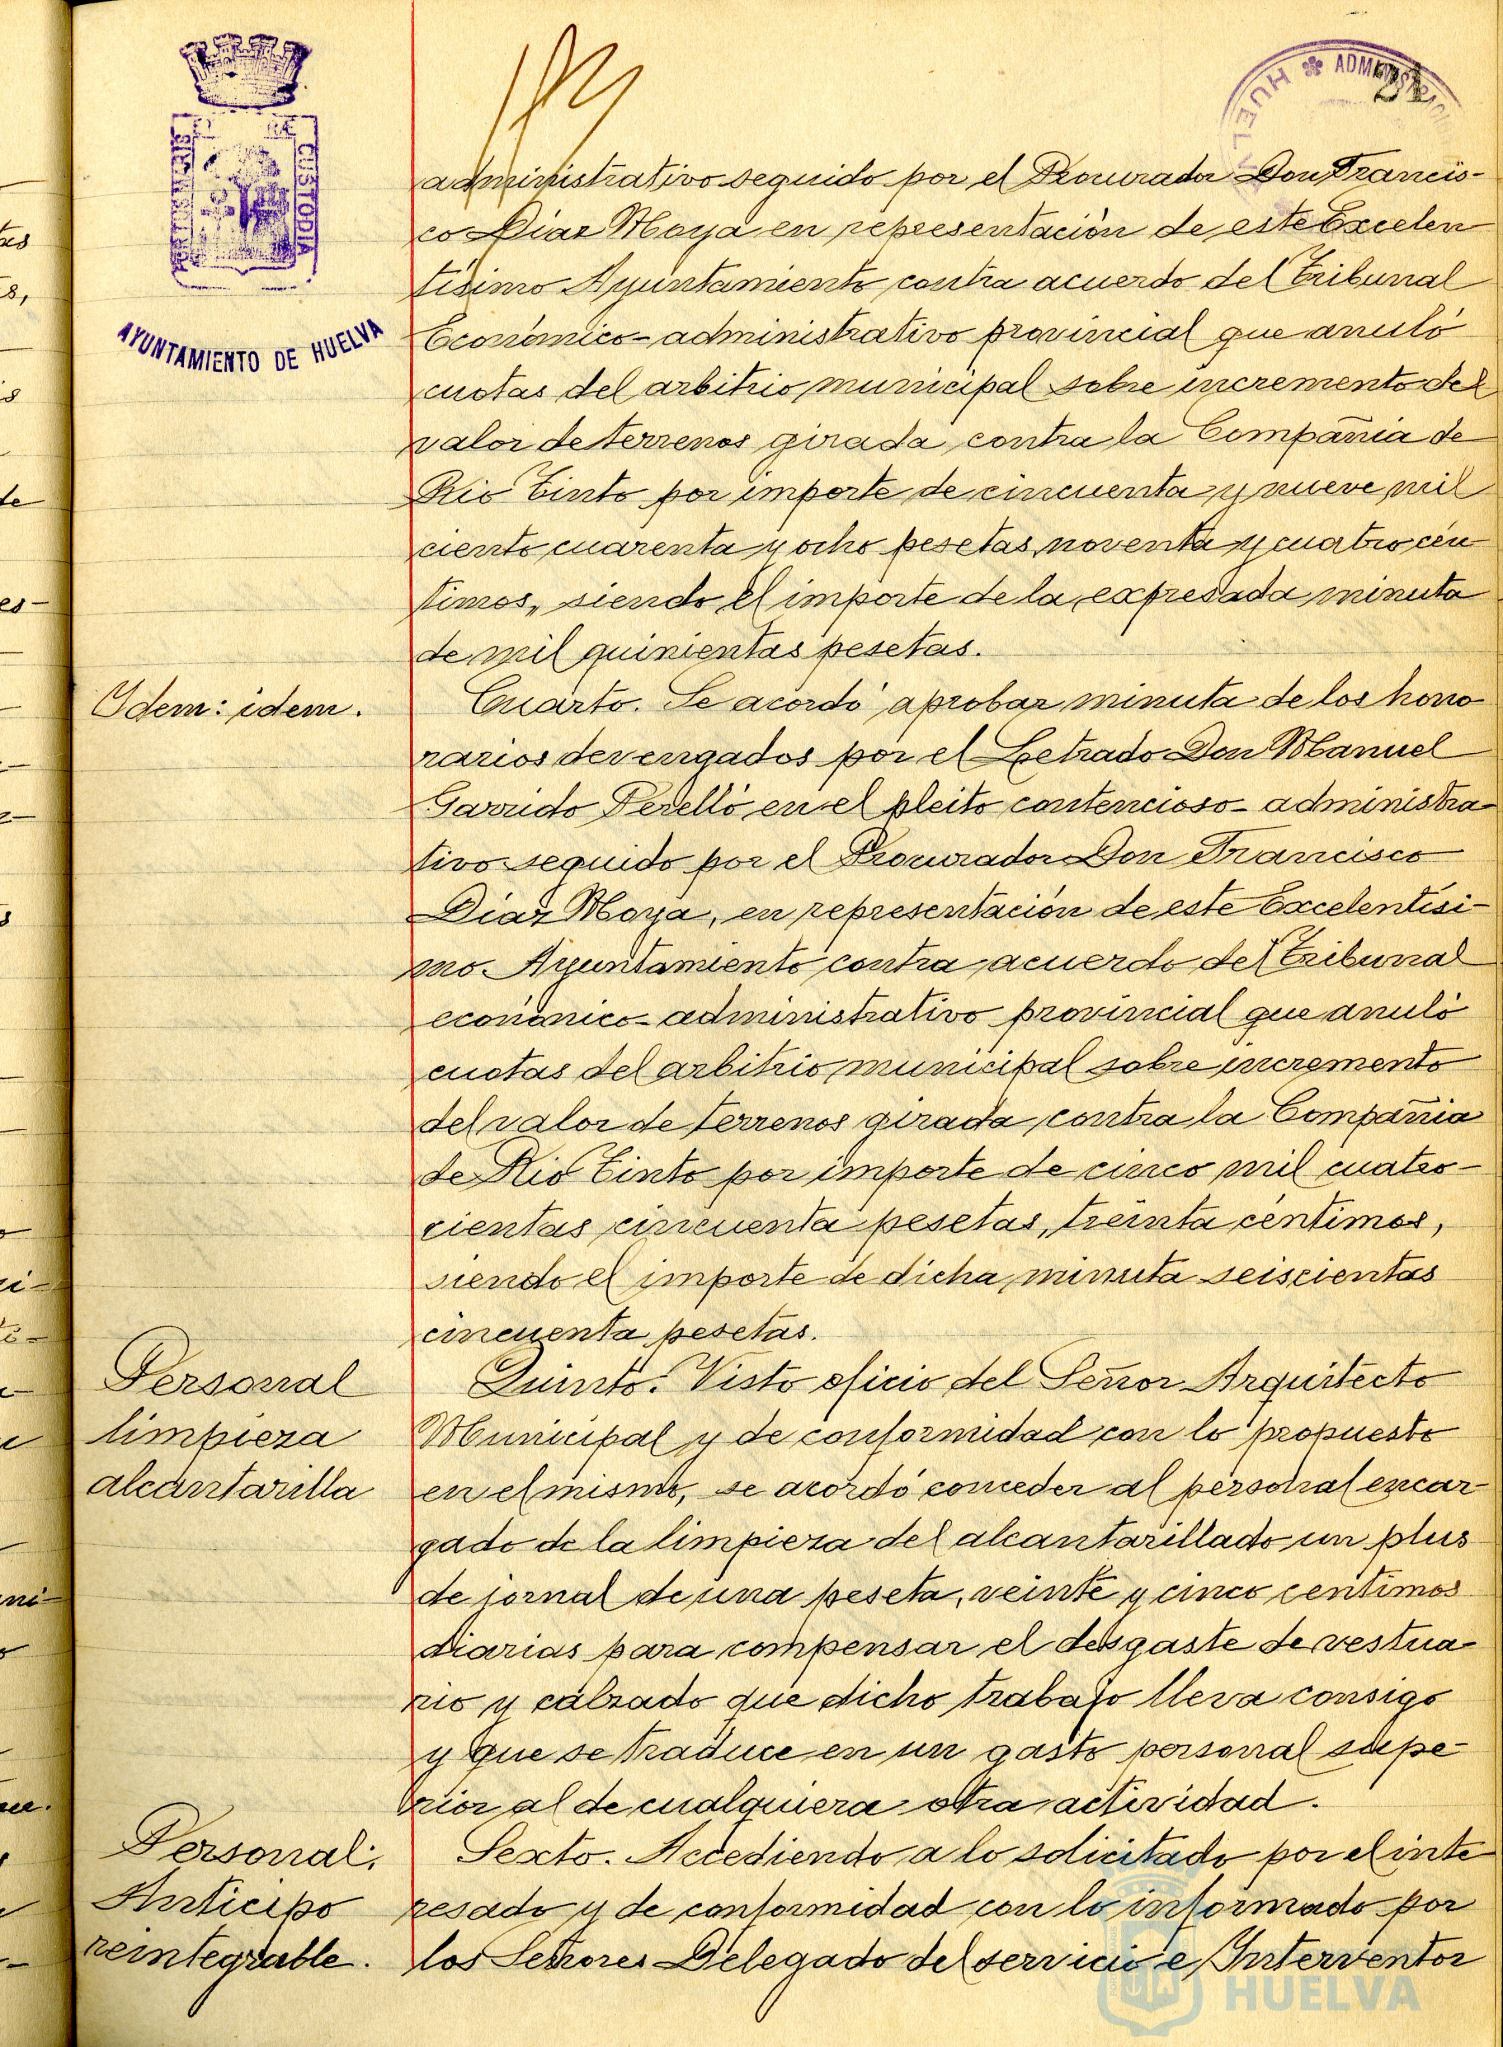 PORTUS MARIS
CUSTODIA
AYUNTAMIENTO DE HUELVA
administrativo seguido por el Procurador Don Francis-
co Diaz Moya en representación de este Excelen
tísimo Ayuntamiento contra acuerdo del Tribunal
Económico-administrativo provincial que anuló
cuotas del arbitrio municipal sobre incremento del
valor de terrenos girada contra la Compañia de
Rio Tinto por importe de cincuenta y nueve mil
ciento cuarenta y ocho pesetas noventa y cuatro cén
timos, siendo el importe de la expresada minuta
de mil quinientas pesetas.
Idem: idem.
Cuarto. Se acordó aprobar minuta de los hono
rarios devengados por el Letrado Don Manuel
Garrido Perelló en el pleito contencioso-administra
tivo seguido por el Procurador Don Francisco
Diaz Moya, en representación de este Excelentísi-
mo Ayuntamiento contra acuerdo del Tribunal
económico-administrativo provincial que anuló
cuotas del arbitrio municipal sobre incremento
del valor de terrenos girada contra la Compañia
de Rio Tinto por importe de cinco mil cuatro-
cientas cincuenta pesetas, treinta céntimos,
siendo el importe de dicha minuta seiscientas
cincuenta pesetas.
Personal
limpieza
alcantarilla
Quinto. Visto oficio del Señor Arquitecto
Municipal y de conformidad con lo propuesto
en el mismo, se acordó conceder al personal encar-
gado de la limpieza del alcantarillado un plus
de jornal de una peseta, veinte y cinco centimos
diarias para compensar el desgaste de vestua-
rio y calzado que dicho trabajo lleva consigo
y que se traduce en un gasto personal supe-
rior al de cualquiera otra actividad.
Personal:
Anticipo
reintegrable.
Sexto. Accediendo a lo solicitado por el inte
resado y de conformidad con lo informado por
los Señores Delegado del servicio e Interventor
HUELVA